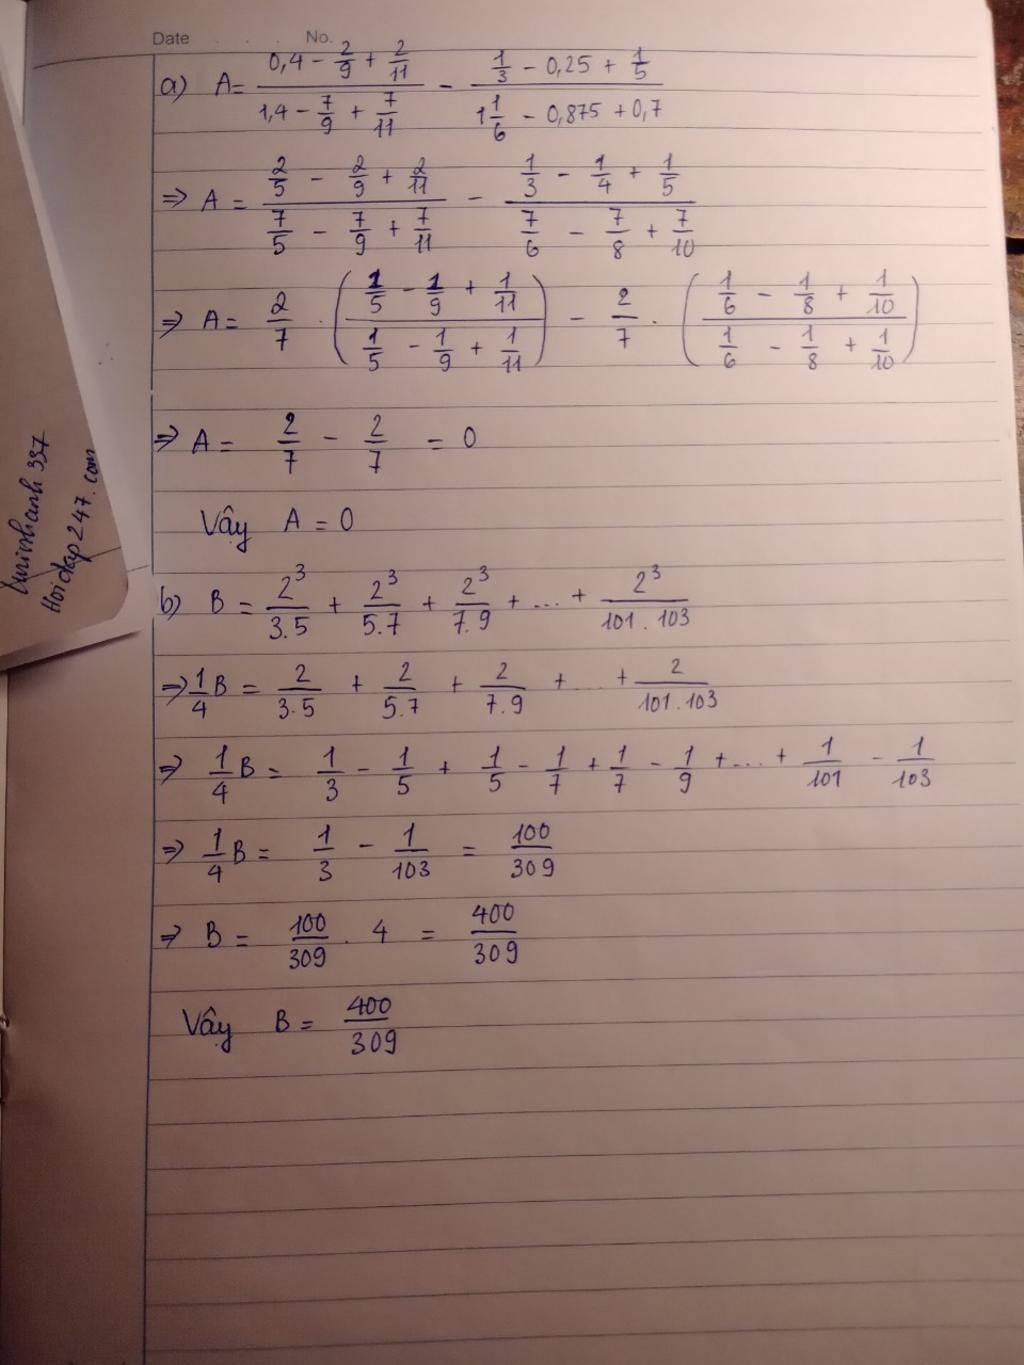 Date . . . No.
a) A = (0,4 - 2/9 + 2/11)/(1,4 - 7/9 + 7/11) - (1/3 - 0,25 + 1/5)/(1 1/6 - 0,875 + 0,7)
=> A = (2/5 - 2/9 + 2/11)/(7/5 - 7/9 + 7/11) - (1/3 - 1/4 + 1/5)/(7/6 - 7/8 + 7/10)
=> A = 2/7 . ((1/5 - 1/9 + 1/11)/(1/5 - 1/9 + 1/11)) - 2/7 . ((1/6 - 1/8 + 1/10)/(1/6 - 1/8 + 1/10))
=> A = 2/7 - 2/7 = 0
Vậy A = 0
b) B = 2³/3.5 + 2³/5.7 + 2³/7.9 + ... + 2³/101.103
=> 1/4 B = 2/3.5 + 2/5.7 + 2/7.9 + ... + 2/101.103
=> 1/4 B = 1/3 - 1/5 + 1/5 - 1/7 + 1/7 - 1/9 + ... + 1/101 - 1/103
=> 1/4 B = 1/3 - 1/103 = 100/309
=> B = 100/309 . 4 = 400/309
Vậy B = 400/309
Hoidap247.com